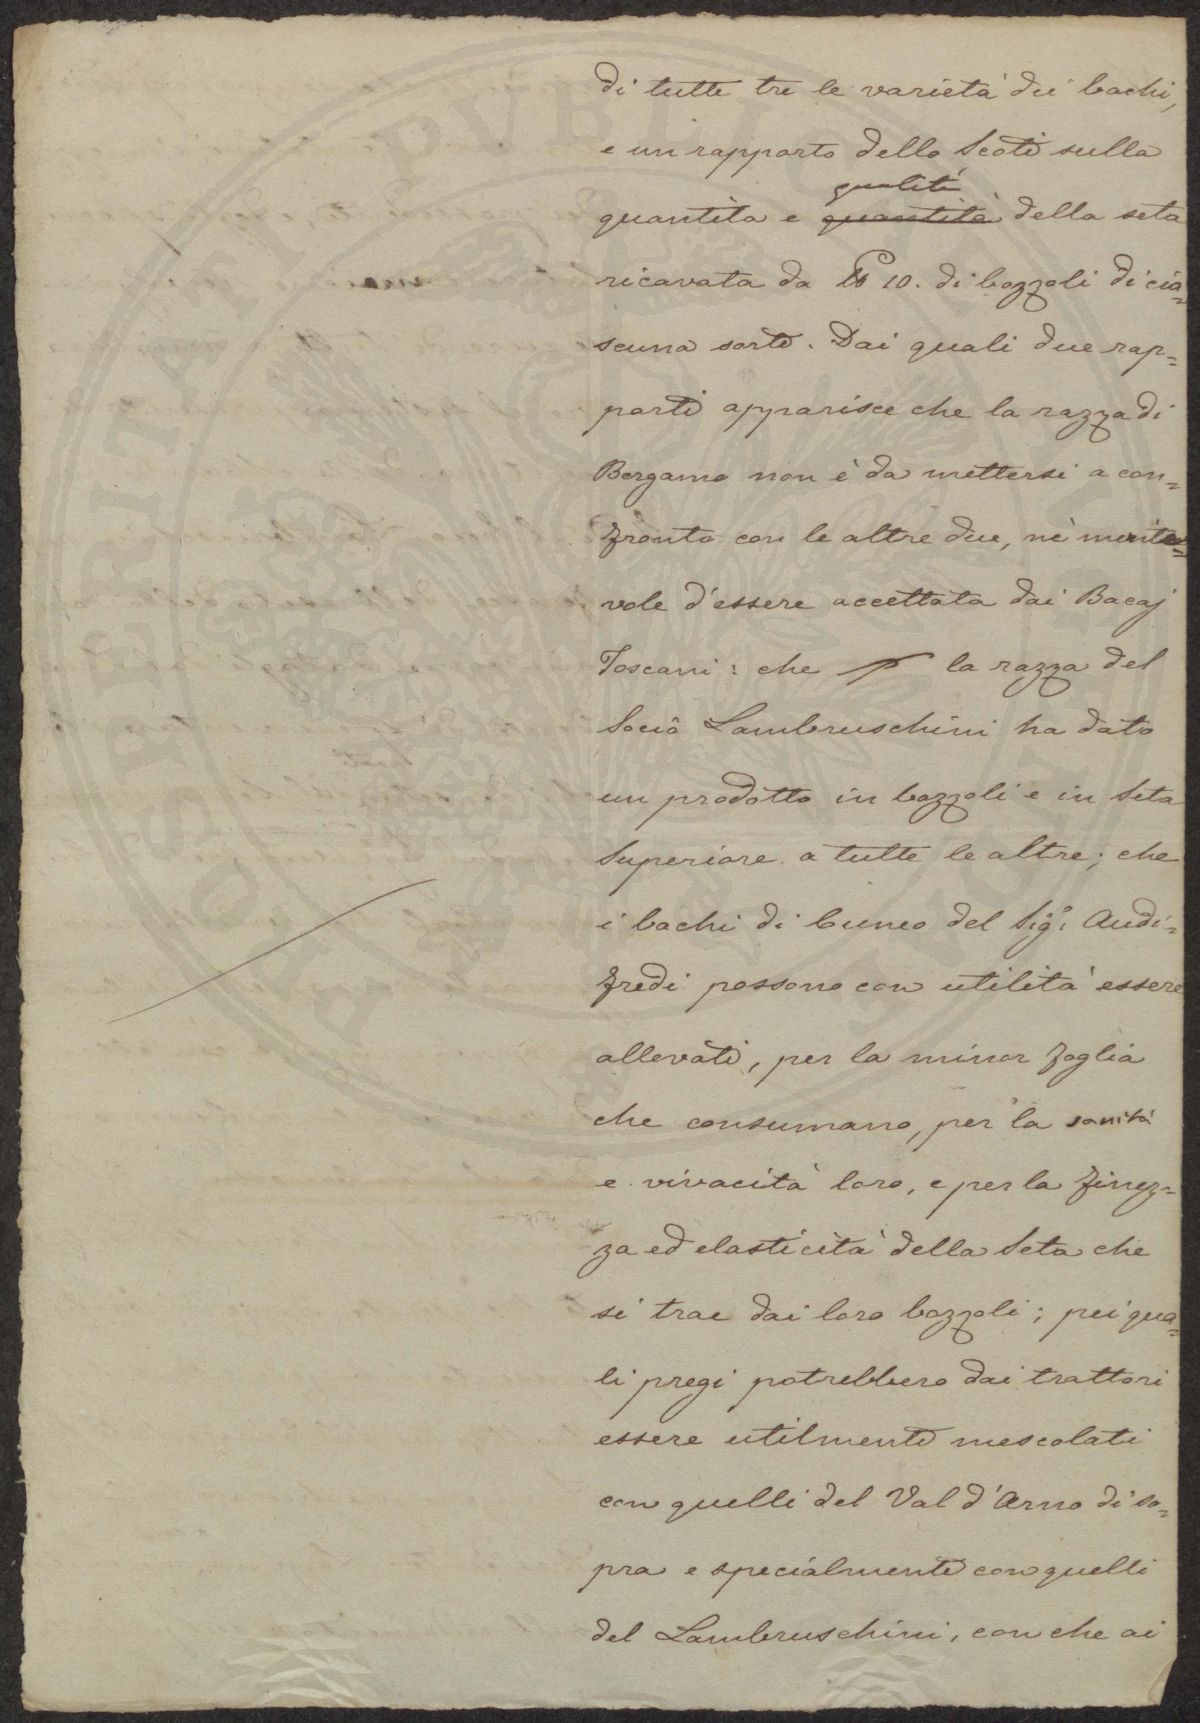 di tutte tre le varietà dei bachi,
e un rapporto dello Scoti sulla
qualità
quantità e quantità della seta
ricavata da 10. di bozzoli di cia=
scuna sorte. Dai quali due rap=
porti apparisce che la razza di
Bergamo non è da mettersi a con=
fronto con le altre due, nè merite=
vole d'essere accettata dai Bacaj
Toscani: che la razza del
Socio Lambruschini ha dato
un prodotto in bozzoli e in Seta
Superiore a tutte le altre; che
i bachi di Cuneo del Sigr. Audi=
fredi possono con utilità essere
allevati, per la minor foglia
che consumano, per la sanità
e vivacità loro, e per la finez=
za ed elasticità della Seta che
si trae dai loro bozzoli; pei qua=
li pregi potrebbero dai trattori
essere utilmente mescolati
con quelli del Val d'Arno di so=
pra e specialmente con quelli
del Lambruschini, con che ai
PROSPERITATI PVBLICAE AVGENDAE